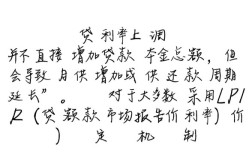 贷利率上调
并不直接增加贷款本金总额，但
会导致月供增加或供还款周期
延长”。 对于大多数采用LPI
R（贷额款市场报告价利率）价
）定机制